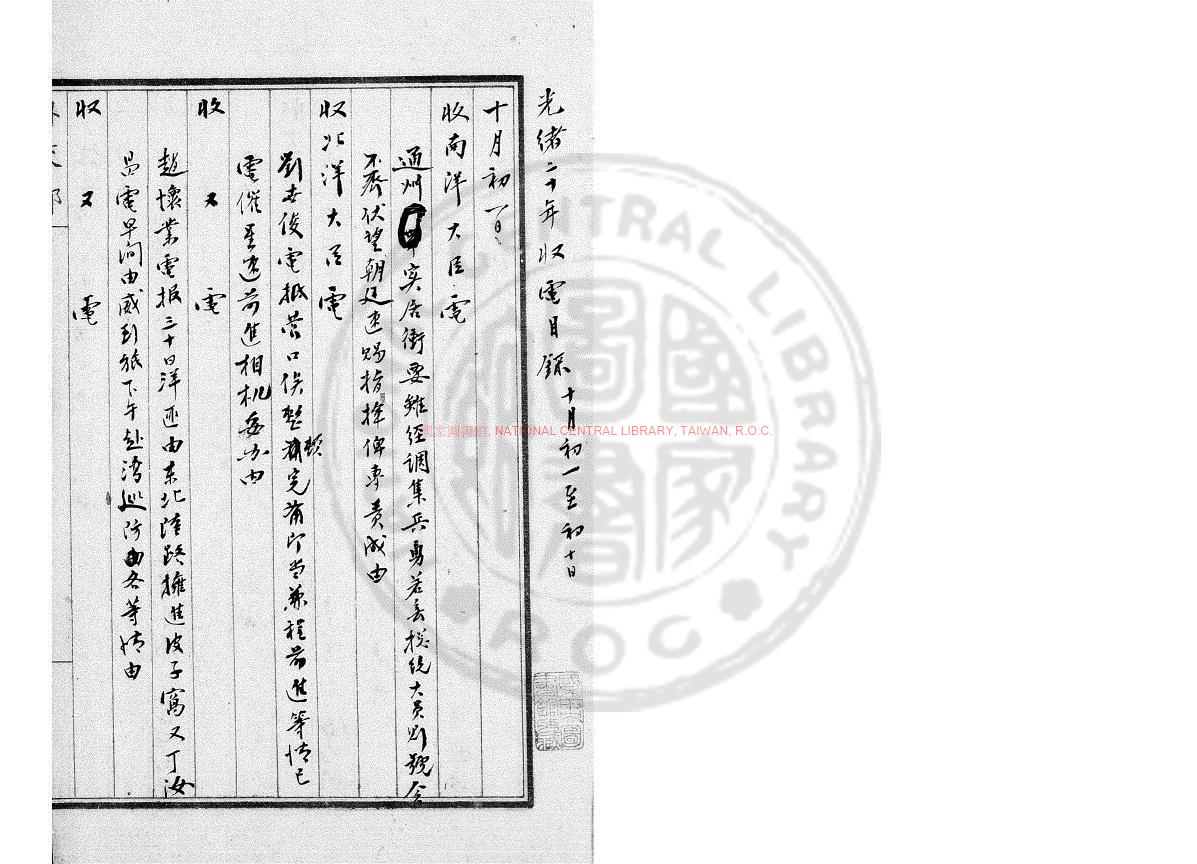 光緒二十年收電目錄 十月初一至初十日
十月初一日
收南洋大臣電
通州實居衝要雖經調集兵勇若無總統大員則號令
不齊伏望朝廷速賜指揮俾專責成由
收北洋大臣電
劉世俊電抵營口俟整頓完備即當兼程前進等情已
電催星速前進相機妥辦由
收 又 電
趙懷業電報三十日洋匪由東北陸路擁進皮子窩又丁汝
昌電早間由威到旅下午赴灣巡防由各等情由
收 又 電
國家圖書館, NATIONAL CENTRAL LIBRARY, TAIWAN, R.O.C.
NATIONAL CENTRAL LIBRARY
ROC